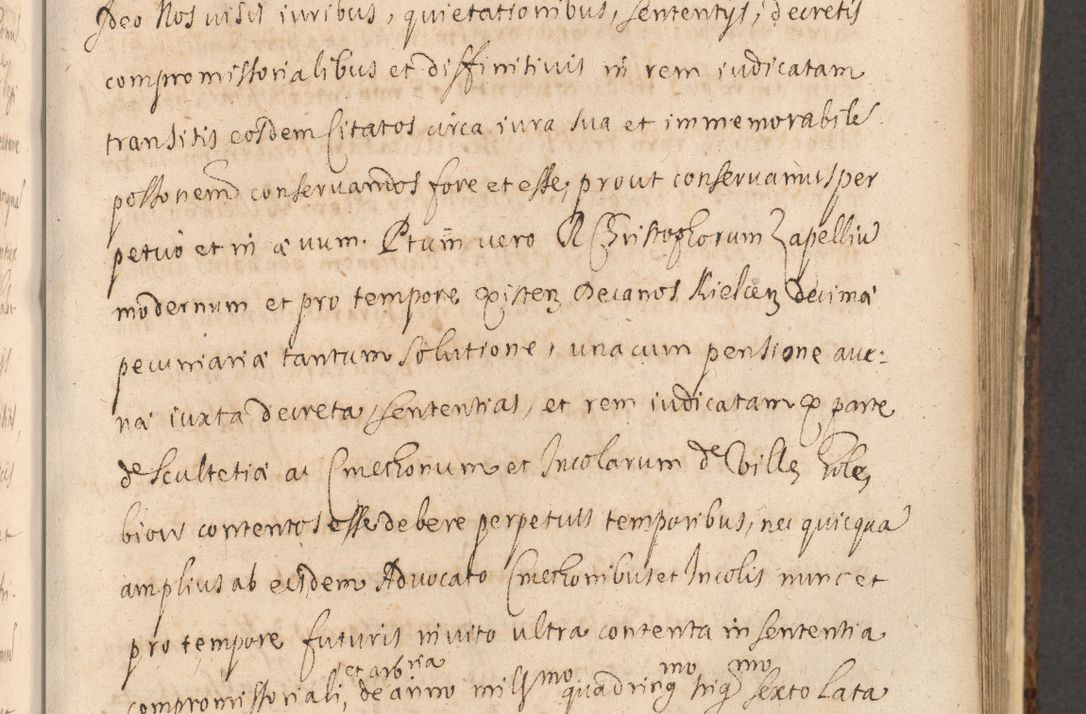 Ideo Nos visis iuribus, quietationibus, sententys, decretis
compromissorialibus et diffinitivis in rem iudicatam
transitis eosdem Citatos circa iura sua et immemorabile
possonem conservandos fore et esse, prout conservamus per
petuo et in ævum. Ptum vero R Christophorum Zapelliu
modernum et pro tempore existen Decanos Kielcen decimæ
pecuniariæ tantum solutione, unacum pensione ave:
næ iuxta decreta, sententias, et rem iudicatam ex parte
de Scultetiæ ac Cmethonum et Incolarum de Villæ
biow contentos esse debere perpetuis temporibus, nec quicqua
amplius ab eisdem Advocato Cmethonibus et Incolis nunc et
pro tempore futuris invito ultra contenta in sententia
et arbria
compromissoriali, de anno mill mo quadring mo trig mo sexto Lata